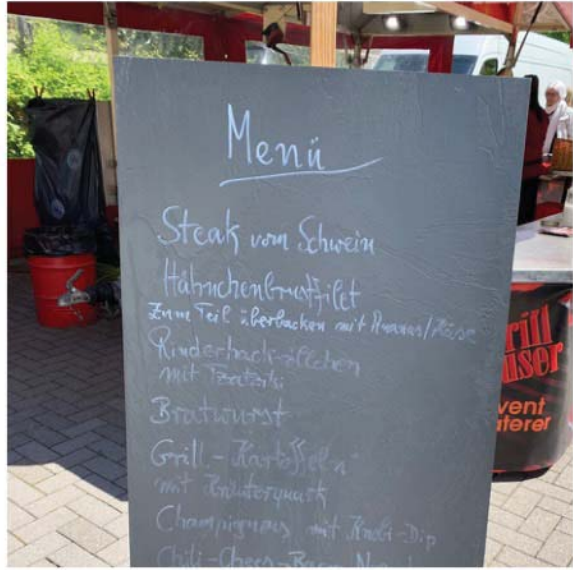 Menü
Steak vom Schwein
Hähnchenbrustfilet
Zum Teil überbacken mit Ananas/Käse
Rinderhackröllchen
mit Tzatziki
Bratwurst
Grill-Kartoffeln
mit Kräuterquark
Champignons mit Knobi-Dip
Chili-Chees-
rill
user
vent
aterer